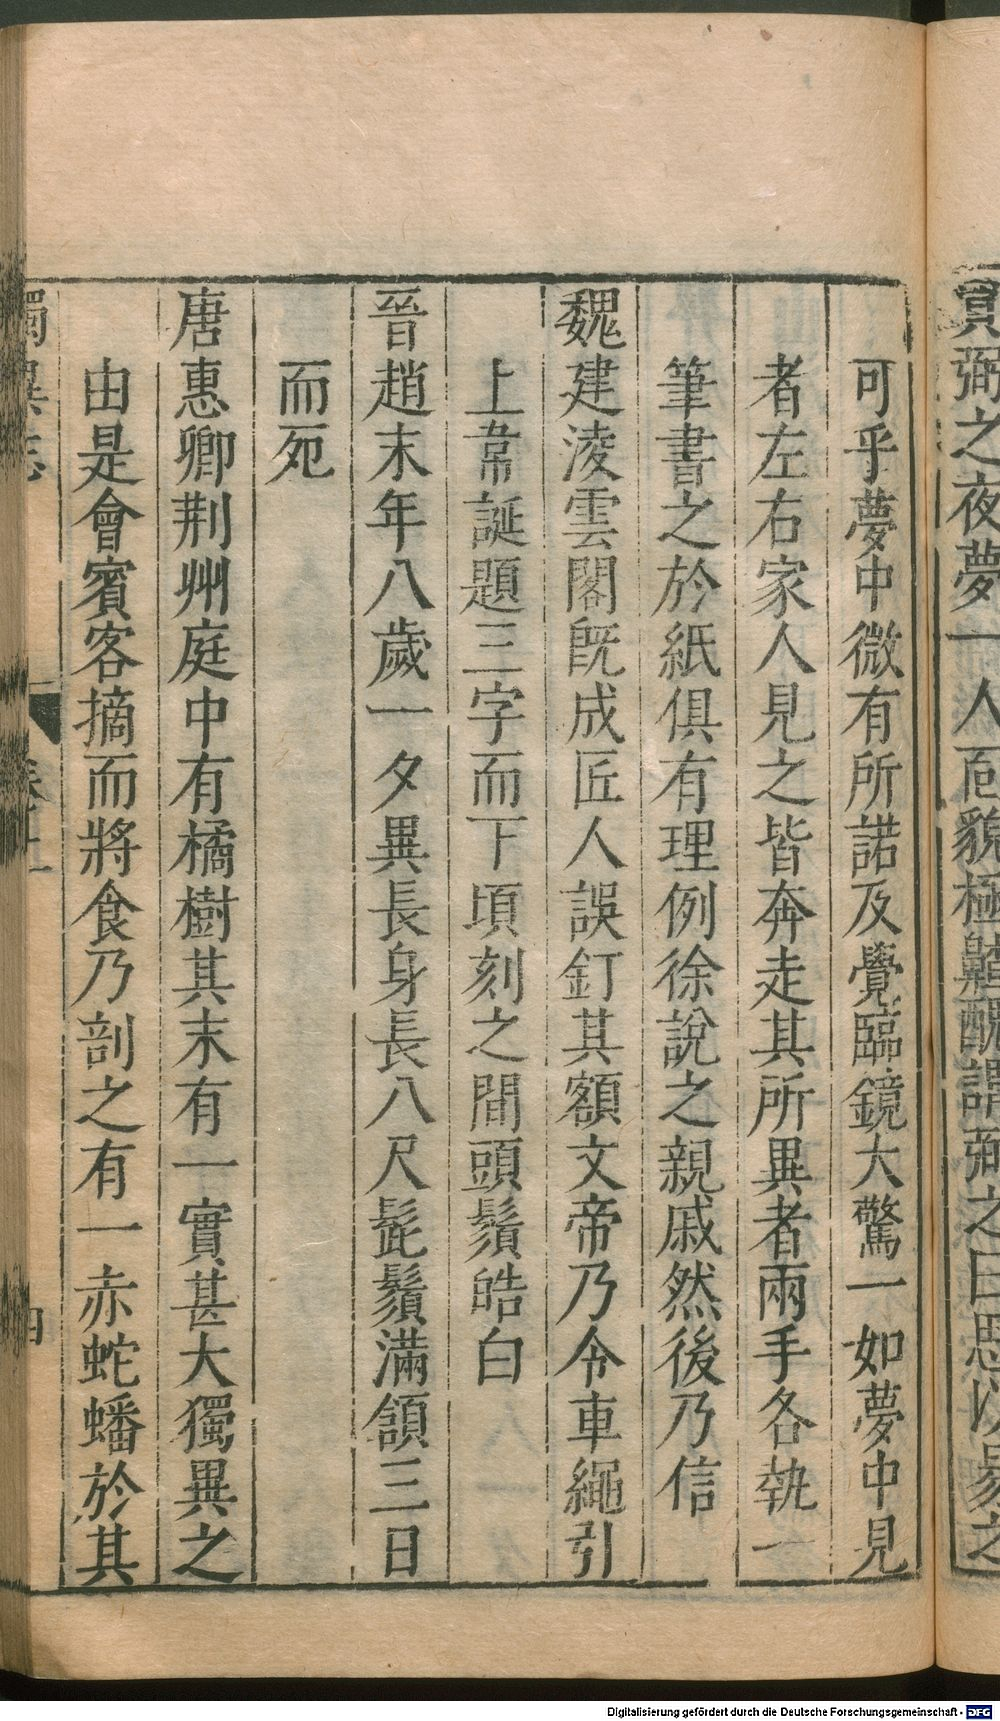 賞弼之夜夢一人面貌極醜謂弼之曰思以易之
可乎夢中微有所諾及覺臨鏡大驚一如夢中見
者左右家人見之皆奔走其所異者兩手各執一
筆書之於紙俱有理例徐說之親戚然後乃信
魏建淩雲閣既成匠人誤釘其額文帝乃令車繩引
上韋誕題三字而下頃刻之間頭鬚皓白
晉趙末年八歲一夕異長身長八尺髭鬚滿頷三日
而死
唐惠卿荆州庭中有橘樹其末有一實甚大獨異之
由是會賓客摘而將食乃剖之有一赤蛇蟠於其
獨異志
卷上
四
Digitalisierung gefördert durch die Deutsche Forschungsgemeinschaft - DFG